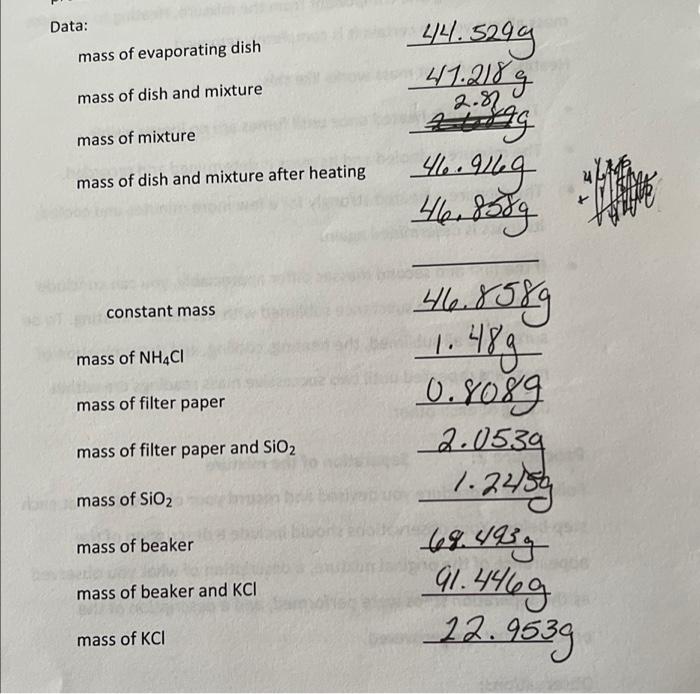 Data:
mass of evaporating dish 44.529g
mass of dish and mixture 47.218g
2.87
mass of mixture 2.689g
mass of dish and mixture after heating 46.916g
46.858g
constant mass 46.858g
mass of NH₄Cl 1.48g
mass of filter paper 0.808g
mass of filter paper and SiO₂ 2.053g
mass of SiO₂ 1.245g
mass of beaker 68.493g
mass of beaker and KCl 91.446g
mass of KCl 22.953g